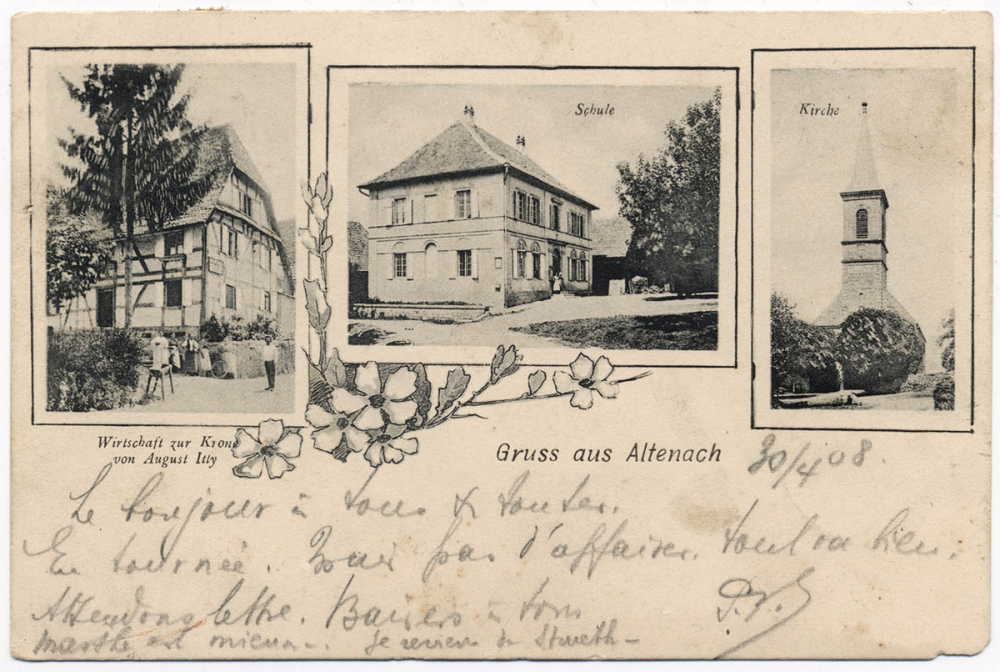 Schule
Kirche
Wirtschaft zur Krone
von August Itty
Gruss aus Altenach
30/4 08.
Le bonjour à tous & toutes.
En tournée. pas d'affaires. tout va bien.
Attendons lettre. Baisers à tous
Marthe est mieux. Je reviens de